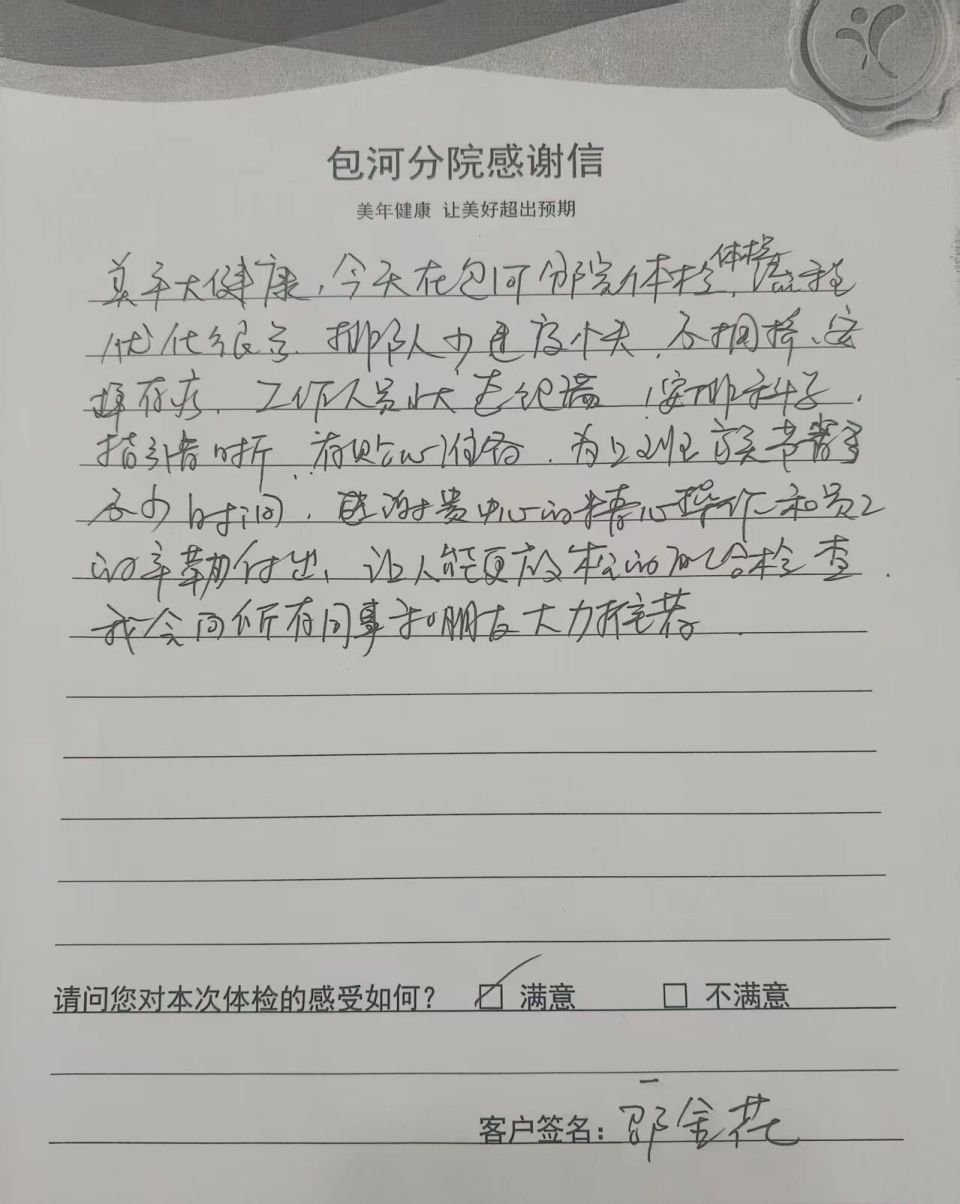 包河分院感谢信
美年健康 让美好超出预期
美年大健康,今天在包河分院体检,体检流程
优化很多、排队人少速度快,不拥挤、安
排有序,工作人员状态饱满,安排科学,
指引清晰 有贴心服务,为上班族节省了
不少时间,感谢贵中心的精心操作和员工
的辛勤付出,让人能更放松的配合检查.
我会向所有同事和朋友大力推荐.
请问您对本次体检的感受如何? ☑ 满意 □ 不满意
客户签名:金花